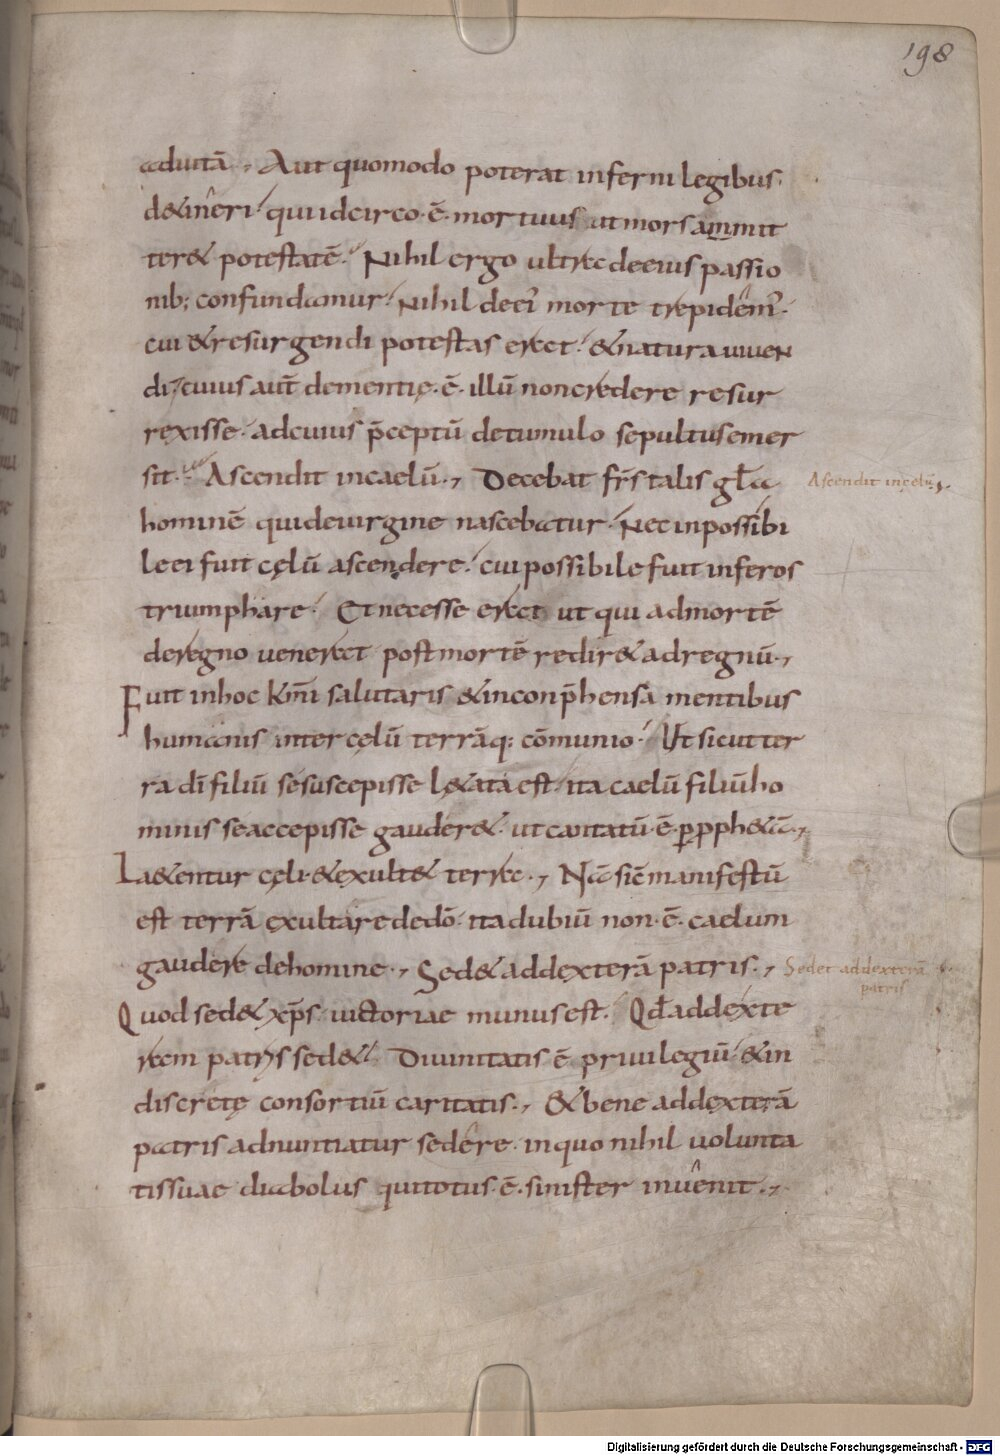 198
aduitā., Aut quomodo poterat inferni legibus
d&ineri qui idcirco·ē·mortuus ut mors ammit
ter& potestatē. Nihil ergo ultra de eius passio
nib; confundamur. Nihil de ei' morte trepidem'.
cui & resurgendi potestas erat. & natura uiuen
di, cuius aut̄ dementię·ē·illū non credere resur
rexisse· ad cuius p̄ceptū de tumulo sepultus emer
sit. Ascendit in caelū., Decebat fr̄s talis gl̄a
hominē qui de uirgine nascebatur. Nec inpossibi
le ei fuit cęlū ascendere. cui possibile fuit inferos
triumphare. Et necesse erat ut qui ad mortē
de regno uenerat post mortē redir& ad regnū.,
Fuit in hoc km̄i salutaris & inconp̄hensa mentibus
humanis inter cęlū terrāq; cōmunio. Ut sicut ter
ra dī filiū se suscepisse l&ata est ita caelū filiū ho
minis se accepisse gauder&. ut cantatū·ē·p̱ p̱ph&ā.,
La&entur cęli·& exult& terra., Nā sic manifestū
est terrā exultare de dō. ita dubiū non·ē·caelum
gaudere de homine., Sed& ad dexterā patris.,
Quod sed& xp̄s uictoriae munus est. Qd̄ ad dexte
ram patris sed& Diuinitatis ē priuilegiū & in
discretę consortiū caritatis., & bene ad dexterā
patris adnuntiatur sedere· in quo nihil uolunta
tis suae diabolus qui totus·ē·sinister inuenit.,
Ascendit in cęlū
Sedet ad dexterā
patris
Digitalisierung gefördert durch die Deutsche Forschungsgemeinschaft - DFG